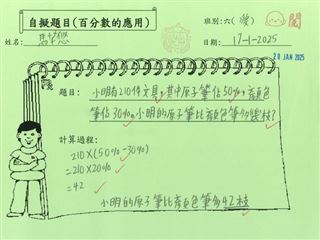 自擬題目(百分數的應用)
班別:六( )
姓名:
日期: 17-1-2025
20 JAN 2025
題目: 小明有210件文具,其中原子筆佔50%,顏色
筆佔30%,小明的原子筆比顏色筆多幾枝?
計算過程:
210×(50%-30%)
=210×20%
=42
小明的原子筆比顏色筆多42枝